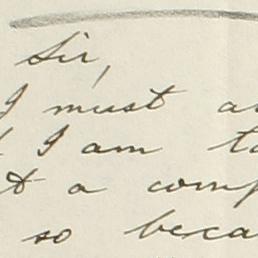 Sir,
I must a
I am t
t a comp
so beca